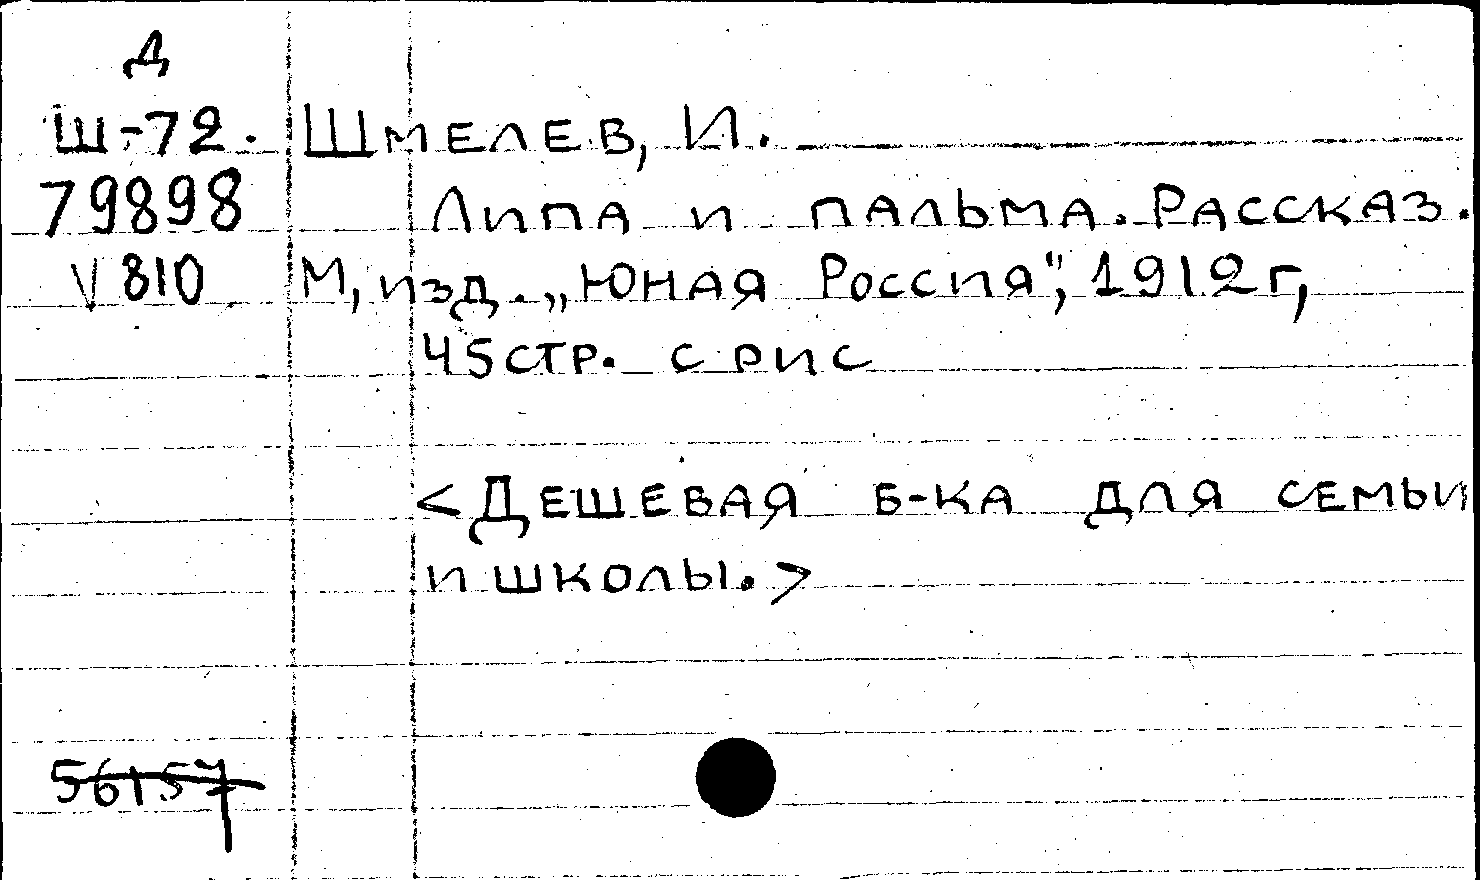 Д
Ш-72. Шмелев, И.
79898 Липа и пальма. Рассказ.
V 810 М, изд. „Юная Россия", 1912 г,
45 стр. с рис
<Дешевая б-ка для семьи
и школы.>
56157